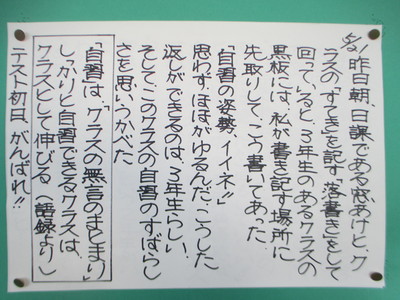 5/21 昨日朝、日課である窓あけと、ク
ラスの「すてき」を記す「落書き」をして
回っていると、3年生のあるクラスの
黒板には、私が書き記す場所に
先取りして、こう書いてあった。
「自習の姿勢、イイネ!!」
思わずほほがゆるんだ。こうした
返しができるのは、3年生らしい。
そして、このクラスの自習のすばらし
さを思いうかべた。
「自習」は、「クラスの無言のまとまり」
しっかりと自習できるクラスは、
クラスとして伸びる（語録より）
テスト初日、がんばれ!!